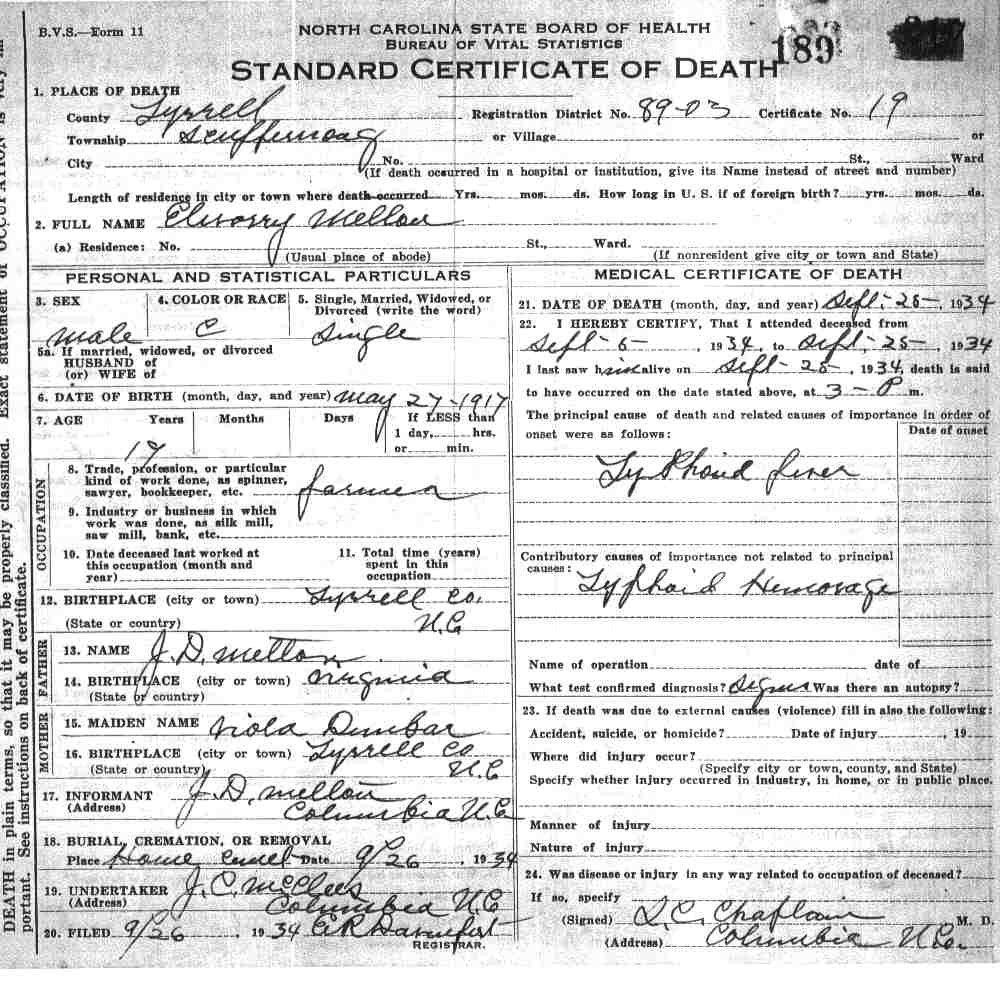 B.V.S.—Form 11
NORTH CAROLINA STATE BOARD OF HEALTH
BUREAU OF VITAL STATISTICS
STANDARD CERTIFICATE OF DEATH
189
1. PLACE OF DEATH
County Tyrrell Registration District No. 89-03 Certificate No. 19
Township Scuffernong or Village or
City No. St., Ward
(If death occurred in a hospital or institution, give its Name instead of street and number)
Length of residence in city or town where death occurred Yrs. mos. ds. How long in U. S. if of foreign birth? yrs. mos. ds.
2. FULL NAME Melton
(a) Residence: No. St., Ward.
(Usual place of abode) (If nonresident give city or town and State)
PERSONAL AND STATISTICAL PARTICULARS
3. SEX 4. COLOR OR RACE 5. Single, Married, Widowed, or Divorced (write the word)
male C Single
5a. If married, widowed, or divorced
HUSBAND of
(or) WIFE of
6. DATE OF BIRTH (month, day, and year) May 27-1917
7. AGE Years Months Days If LESS than
1 day, hrs.
or min.
17
8. Trade, profession, or particular
kind of work done, as spinner,
sawyer, bookkeeper, etc. farmer
9. Industry or business in which
work was done, as silk mill,
saw mill, bank, etc.
OCCUPATION
10. Date deceased last worked at
this occupation (month and
year)
11. Total time (years)
spent in this
occupation
12. BIRTHPLACE (city or town) Tyrrell Co.
(State or country) N.C
FATHER
13. NAME J. D. Melton
14. BIRTHPLACE (city or town) Virginia
(State or country)
MOTHER
15. MAIDEN NAME Viola Dunbar
16. BIRTHPLACE (city or town) Tyrrell Co
(State or country) N.C
17. INFORMANT J. D. Melton
(Address) Columbia N.C
18. BURIAL, CREMATION, OR REMOVAL
Place Home Date 9/26, 1934
19. UNDERTAKER J. C. McClees
(Address) Columbia N.C
20. FILED 9/26 1934 C.R. Davenport
REGISTRAR.
MEDICAL CERTIFICATE OF DEATH
21. DATE OF DEATH (month, day, and year) Sept- 25-, 1934
22. I HEREBY CERTIFY, That I attended deceased from
Sept-6-, 1934, to Sept, 25-, 1934
I last saw him alive on Sept- 25-, 1934, death is said
to have occurred on the date stated above, at 3-P m.
The principal cause of death and related causes of importance in order of
onset were as follows: Date of onset
Typhoid fever
Contributory causes of importance not related to principal
causes: Typhoid Hemorage
Name of operation date of
What test confirmed diagnosis? Signs Was there an autopsy?
23. If death was due to external causes (violence) fill in also the following:
Accident, suicide, or homicide? Date of injury , 19
Where did injury occur?
(Specify city or town, county, and State)
Specify whether injury occurred in industry, in home, or in public place.
Manner of injury
Nature of injury
24. Was disease or injury in any way related to occupation of deceased?
If so, specify
(Signed) Chaplain M. D.
(Address) Columbia N.C.
DEATH in plain terms, so that it may be properly classified. Exact statement of OCCUPATION is very
portant. See instructions on back of certificate.